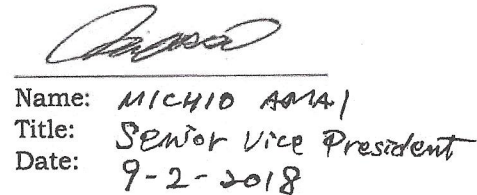 Name: MICHIO AMAI
Title: Senior Vice President
Date: 9-2-2018